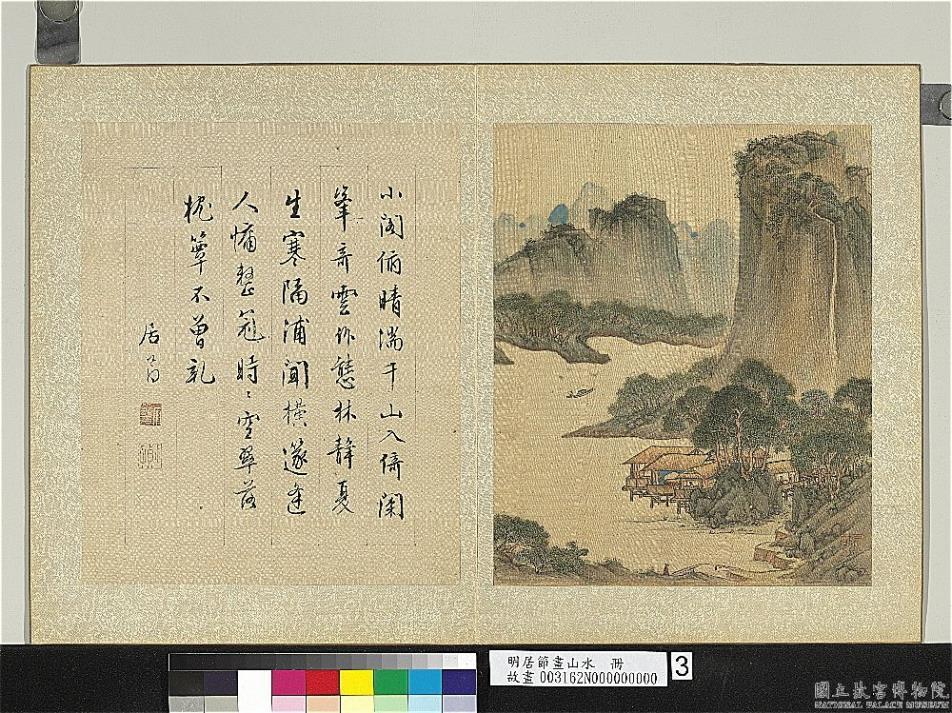 小閣俯晴湍千山入倚闌
峯奇雲作態林靜夏
生寒隔浦聞樵遂逢
人慵整冠時〻空翠落
枕簟不曾乾
居節
明居節畫山水 冊
故畫003162N000000000
3
國立故宮博物院
NATIONAL PALACE MUSEUM